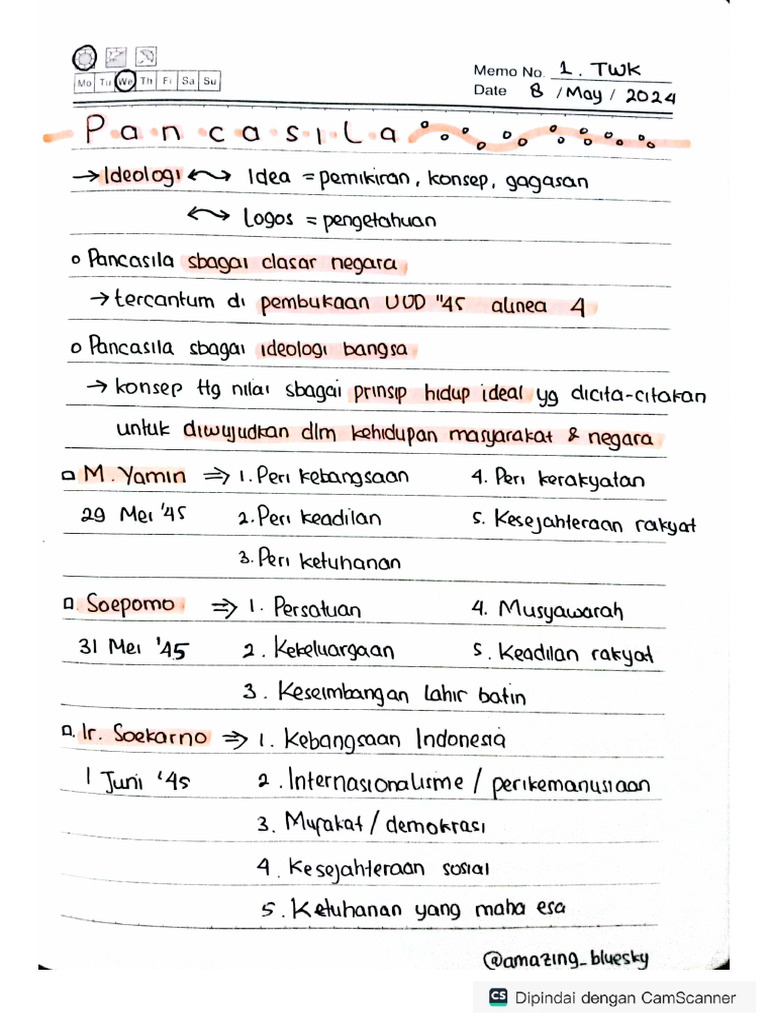 Mo Tu We Th Fr Sa Su
Memo No. 1. TWK
Date 8 / May / 2024
Pancasila
→ Ideologi ↔ Idea = pemikiran, konsep, gagasan
↔ Logos = pengetahuan
o Pancasila sbagai dasar negara
→ tercantum di pembukaan UUD "45 alinea 4
o Pancasila sbagai ideologi bangsa
→ konsep ttg nilai sbagai prinsip hidup ideal yg dicita-citakan
untuk diwujudkan dlm kehidupan masyarakat & negara
□ M. Yamin ⇒ 1. Peri kebangsaan 4. Peri kerakyatan
29 Mei '45 2. Peri keadilan 5. Kesejahteraan rakyat
3. Peri ketuhanan
□ Soepomo ⇒ 1. Persatuan 4. Musyawarah
31 Mei '45 2. Kekeluargaan 5. Keadilan rakyat
3. Keseimbangan lahir batin
□. Ir. Soekarno ⇒ 1. Kebangsaan Indonesia
1 Juni '45 2. Internasionalisme / perikemanusiaan
3. Mufakat / demokrasi
4. Kesejahteraan sosial
5. Ketuhanan yang maha esa
@amazing_bluesky
CS Dipindai dengan CamScanner